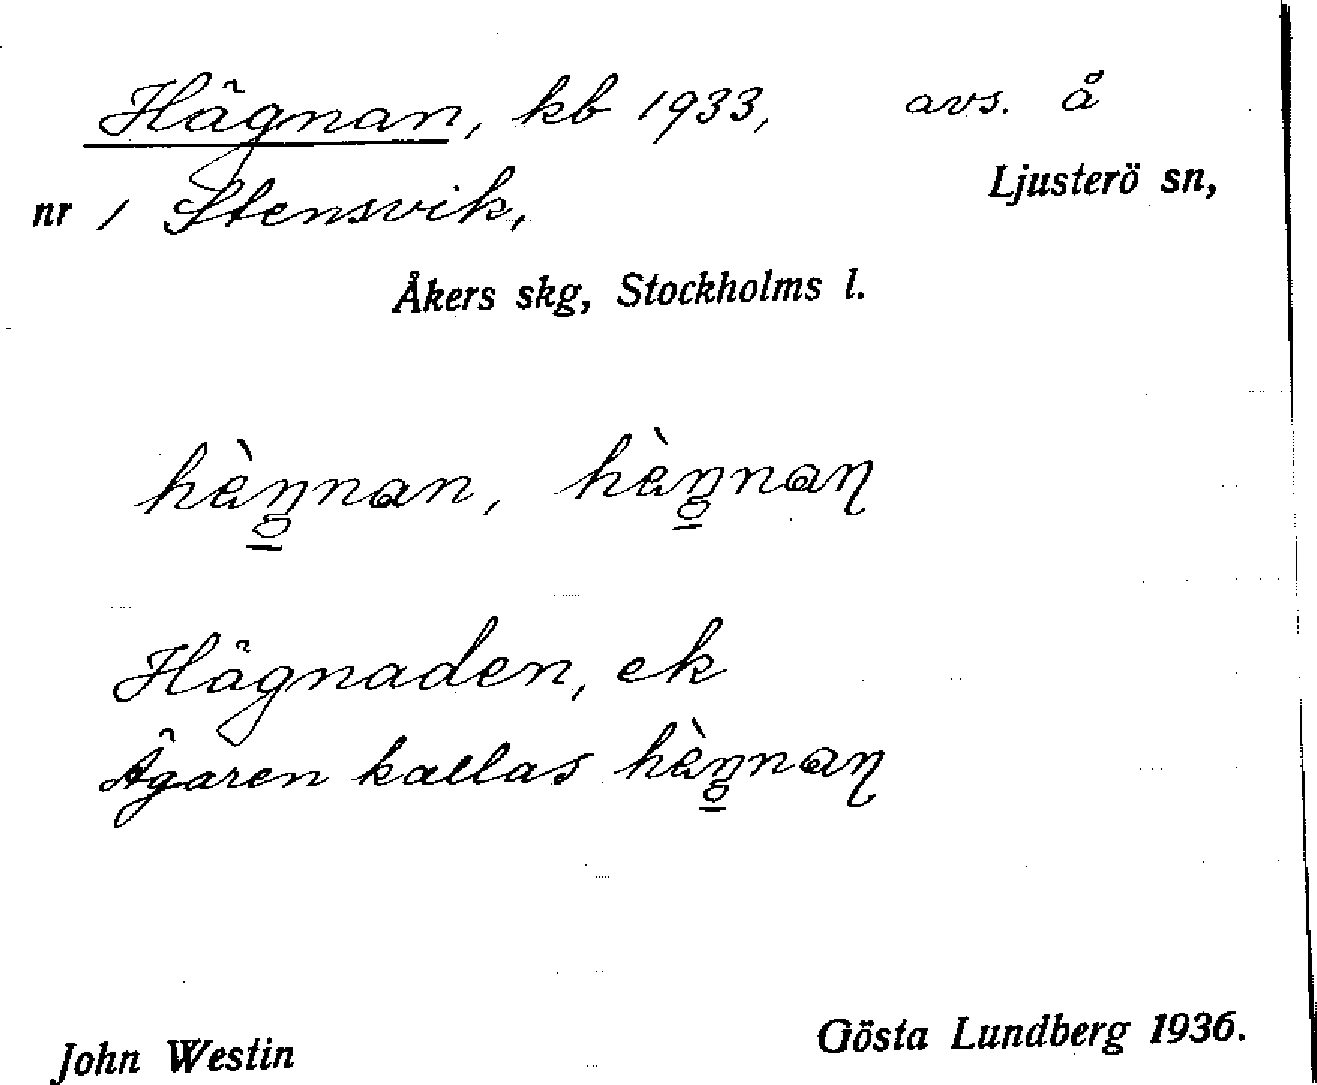 Hägnan, kb 1933, avs. å
nr 1 Stensvik, Ljusterö sn,
Åkers skg, Stockholms l.
hàŋnan, hàŋnaɳ
Hägnaden, ek
Ägaren kallas hàŋnaɳ
John Westin Gösta Lundberg 1936.